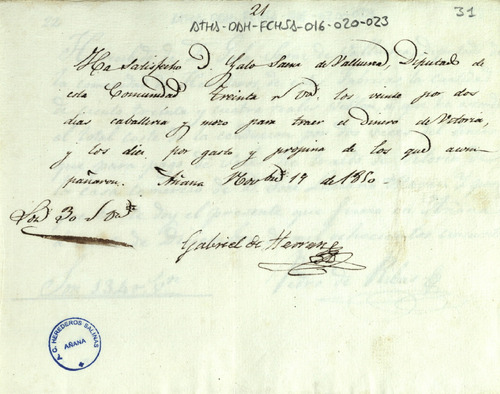 21
31
ATHA-DAH-FCHSA-016-020-023
Ha satisfecho D. Galo Saenz de Valluerca, Diputado de
esta Comunidad Treinta rs. vn. los veinte por dos
dias caballeria y mozo para traer el dinero de Vitoria,
y los diez por gasto y propina de los que acom
pañaron. Añana Novbre 19 de 1850
Son 30 rs. vn.
Gabriel de Herran
C. HEREDEROS SALINAS
AÑANA